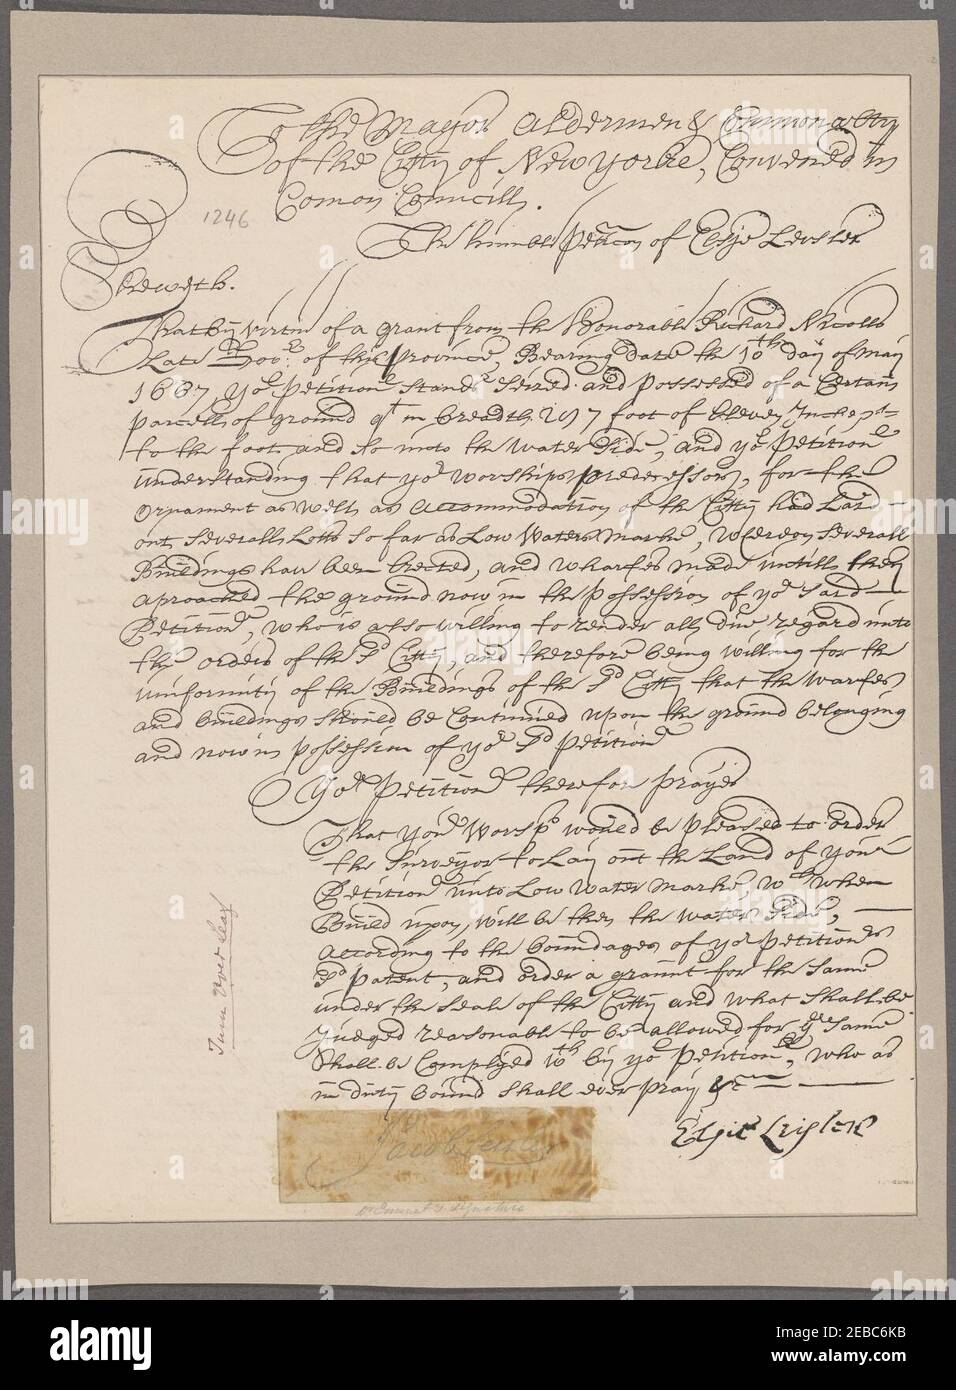 To the Mayor Aldermen & Commonalty
of the Citty of New Yorke, Convened in
Comon Councill.
1246
The humble Peticon of Elsje Leisler
Sheweth.
That by virtue of a grant from the Honorable Richard Nicolls
Late Govr. of this Province, Bearing date the 10th day of May
1667, yor Petitionr stands seized and possessed of a Certain
parcell of ground qt in breadth 197 foot of Eleven Inches
to the foot, and so into the water side, and yor Petitionr
understanding that yor worships predecessors, for the
ornament as well as accommodation of the Citty had Laid
out severall Lotts so far as Low Water Marke, whereon severall
Buildings have been Erected, and wharfes made untill they
aproached the ground now in the possession of yor said
Petitionr, who is also willing to render all due regard unto
the orders of the sd Citty, and therefore being willing for the
uniformity of the Buildings of the sd Citty that the warfes
and buildings should be Continued upon the ground belonging
and now in possession of yor sd Petitionr
Yor Petitionr therefor prayes
That your Worsps would be pleased to order
the Surveyor to Lay out the Land of your
Petitionr unto Low water marke wch when
Build upon, will be then the water side,
according to the boundages of yor Petitioners
sd patent, and order a graunt for the same
under the seale of the Citty and what shall be
Judged reasonable to be allowed for ye same
shall be Complyed wth by yor Petitionr, who as
in duty bound shall ever pray &c
Elsie Leisler
Turn Over leaf
Jacob Leisler
Dr Emmet's signature
alamy
Image ID: 2EBC6KB
www.alamy.com